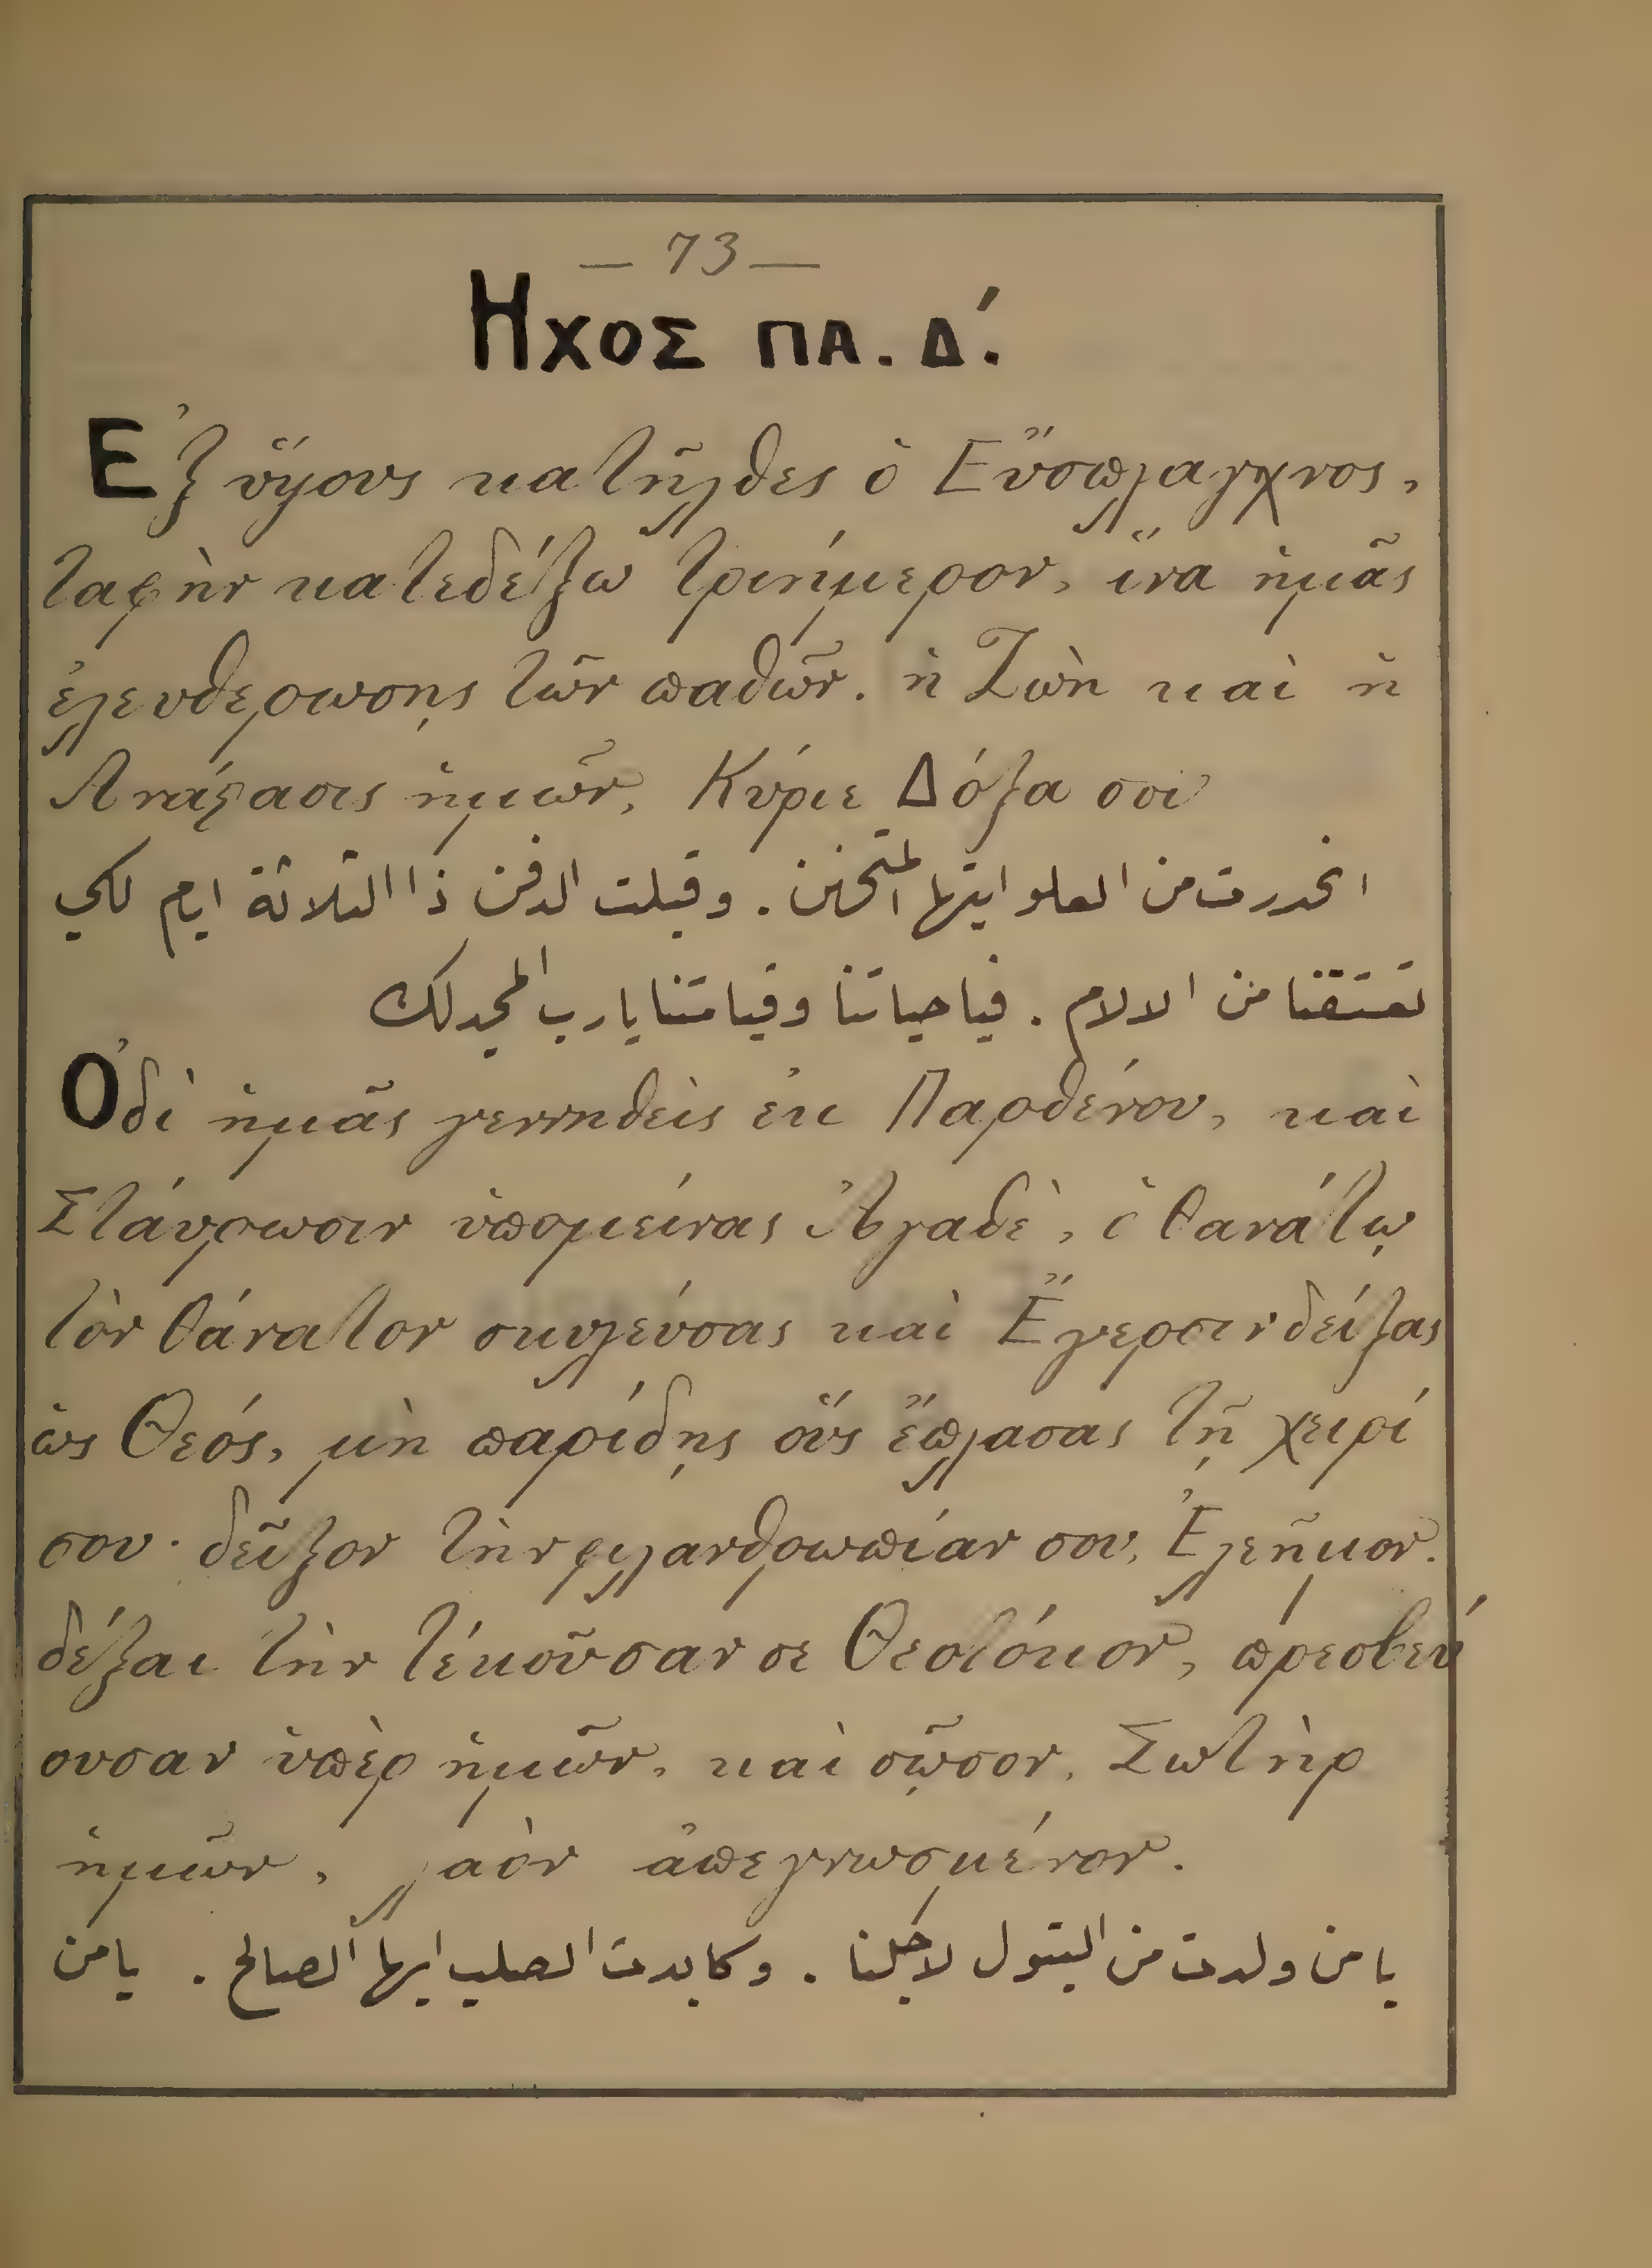 — 73 —
Ηχος πλ. Δ́.
Ἐξ ὕψους κατῆλθες ὁ Εὔσπλαγχνος,
ταφὴν κατεδέξω τριήμερον, ἵνα ἡμᾶς
ἐλευθερώσῃς τῶν παθῶν. ἡ Ζωὴ καὶ ἡ
Ἀνάστασις ἡμῶν, Κύριε Δόξα σοι
انحدرت من العلو ايتها المتحنن . وقبلت الدفن ذا الثلاثة ايام لكي
تعتقنا من الالام . فيا حياتنا وقيامتنا يارب المجد لك
Ὁ δι ἡμᾶς γεννηθεὶς ἐκ Παρθένου, καὶ
Στάυρωσιν ὑπομείνας Ἀγαθὲ, ὁ θανάτῳ
τὸν θάνατον σκυλεύσας καὶ Ἔγερσιν δείξας
ὡς Θεός, μὴ παρίδῃς οὓς ἔπλασας τῇ χειρί
σου· δεῖξον τὴν φιλανθρωπίαν σου, Ἐλεῆμον.
δέξαι τὴν τέκοῦσαν σε Θεοτόκον, πρεσβεύ
ουσαν ὑπὲρ ἡμῶν, καὶ σῷσον, Σωτὴρ
ἡμῶν, λαὸν ἀπεγνωσμένον.
يا من ولدت من البتول لاجلنا . وكابدت الصلب ايها الصالح . يا من